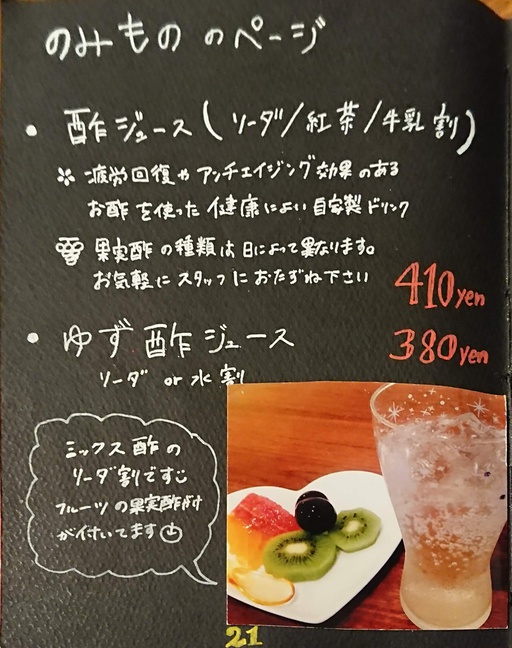 のみもの のページ
• 酢ジュース(ソーダ/紅茶/牛乳割)
※ 疲労回復やアンチエイジング効果のある
お酢を使った健康によい自家製ドリンク
果実酢の種類は日によって異なります。
お気軽にスタッフにおたずね下さい
410yen
• ゆず酢ジュース
380yen
ソーダ or 水割
ミックス酢の
ソーダ割です
フルーツの果実酢付
が付いてます
21